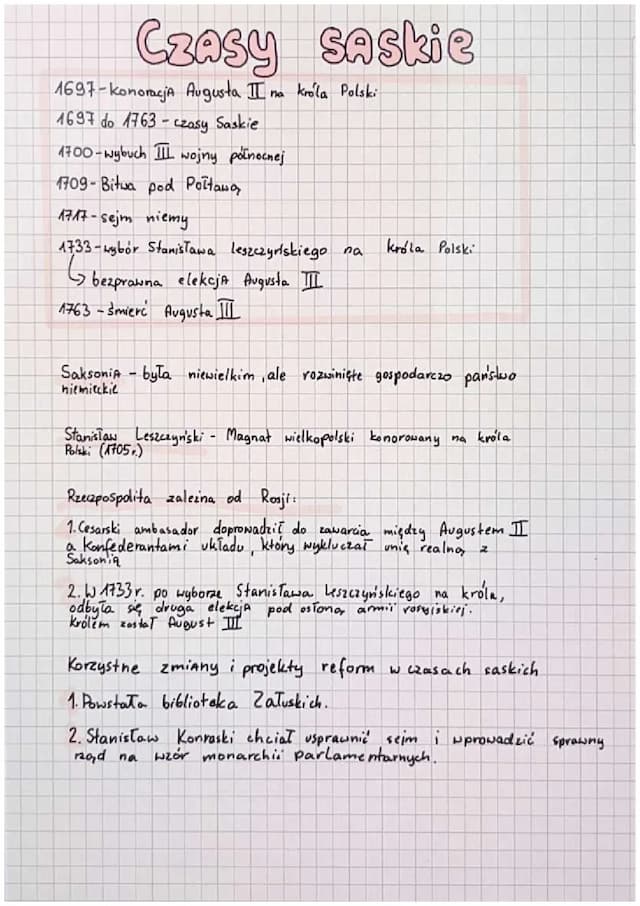 Czasy saskie
1697-konoracja Augusta II na króla Polski
1697 do 1763 - czasy Saskie
1700-wybuch III wojny północnej
1709- Bitwa pod Połtawą
1717-sejm niemy
1733-wybór Stanisława leszczyńskiego na króla Polski
↳ bezprawna elekcja Augusta III
1763 - śmierć Augusta III
Saksonia - była niewielkim, ale rozwinięte gospodarczo państwo
niemieckie
Stanisław Leszczyński - Magnat wielkopolski konorowany na króla
Polski (1705r.)
Rzeczpospolita zależna od Rosji:
1. Cesarski ambasador doprowadził do zawarcia między Augustem II
a Konfederantami układu, który wykluczał unię realną z
Saksonią
2. W 1733r. po wyborze Stanisława Leszczyńskiego na króla,
odbyła się druga elekcja pod osłoną armii rosyjskiej.
królem został August III
Korzystne zmiany i projekty reform w czasach saskich
1. Powstała biblioteka Załuskich.
2. Stanisław Konraski chciał usprawnić sejm i wprowadzić sprawny
rząd na wzór monarchii parlamentarnych.